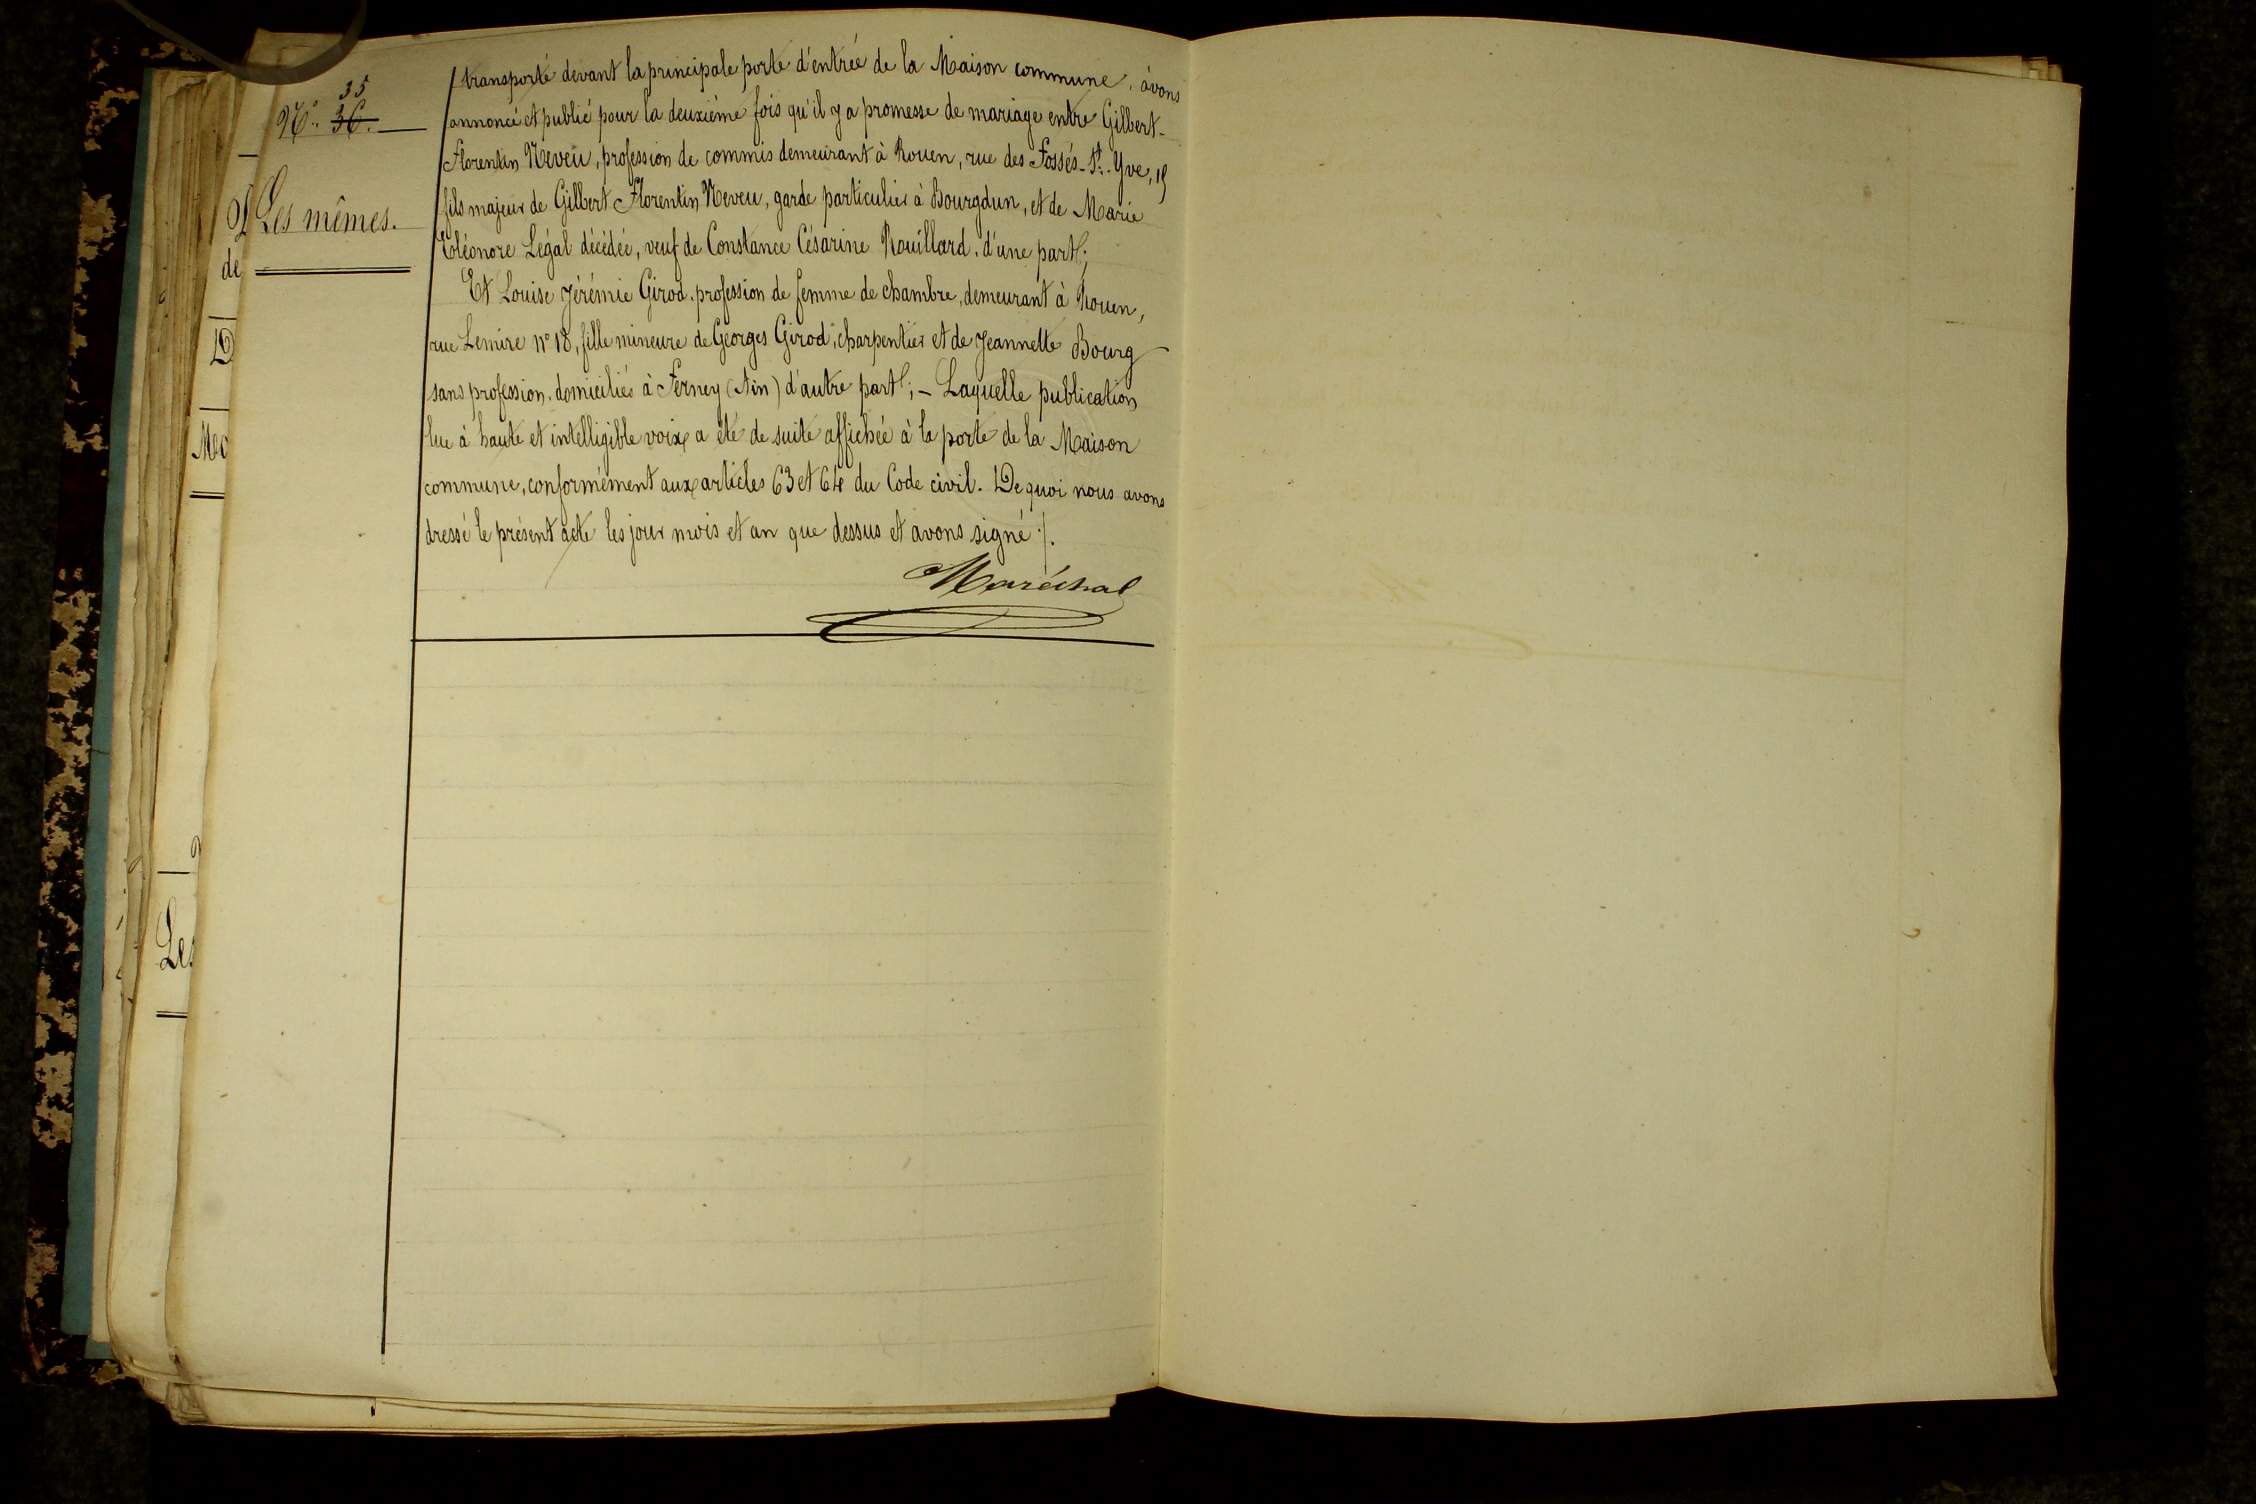 35
N°. 36.
Les mêmes.
transporté devant la principale porte d'entrée de la Maison commune, avons
annoncé et publié pour la deuxième fois qu'il y a promesse de mariage entre Gilbert-
Florentin Neveu, profession de commis demeurant à Rouen, rue des Fossés-St-Yve, 19
fils majeur de Gilbert Florentin Neveu, garde particulier à Bourgdun, et de Marie
Eléonore Légal décédée, veuf de Constance Césarine Rouillard, d'une part;
Et Louise Jérémie Girod, profession de femme de chambre, demeurant à Rouen,
rue Lemire n° 18, fille mineure de Georges Girod, charpentier et de Jeannette Bourg
sans profession, domiciliés à Ferney (Ain) d'autre part; - Laquelle publication
lue à haute et intelligible voix a été de suite affichée à la porte de la Maison
commune, conformément aux articles 63 et 64 du Code civil. De quoi nous avons
dressé le présent acte les jour mois et an que dessus et avons signé ./.
Maréchal
de
Les